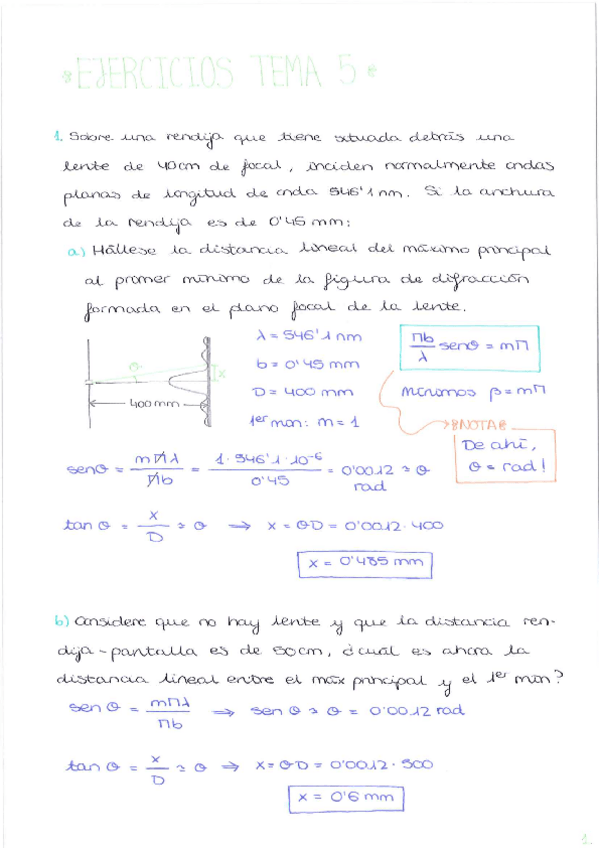 *EJERCICIOS TEMA 5*
1. Sobre una rendija que tiene situada detrás una
lente de 40cm de focal, inciden normalmente ondas
planas de longitud de onda 546'1 nm. Si la anchura
de la rendija es de 0'45 mm:
a) Hállese la distancia lineal del máximo principal
al primer mínimo de la figura de difracción
formada en el plano focal de la lente.
θ
x
400 mm
λ = 546'1 nm
b = 0'45 mm
D = 400 mm
1er mín: m = 1
Πb/λ senθ = mΠ
mínimos β = mΠ
NOTA
De ahí,
θ = rad!
senθ = mΠλ/Πb = 1·546'1·10⁻⁶/0'45 = 0'0012 ≈ θ
rad
tan θ = x/D ≈ θ ⟹ x = θD = 0'0012·400
x = 0'485 mm
b) Considere que no hay lente y que la distancia ren-
dija-pantalla es de 50cm, ¿cuál es ahora la
distancia lineal entre el máx principal y el 1er mín?
sen θ = mΠλ/Πb ⟹ sen θ ≈ θ = 0'0012 rad
tan θ = x/D ≈ θ ⟹ x = θD = 0'0012·500
x = 0'6 mm
1.